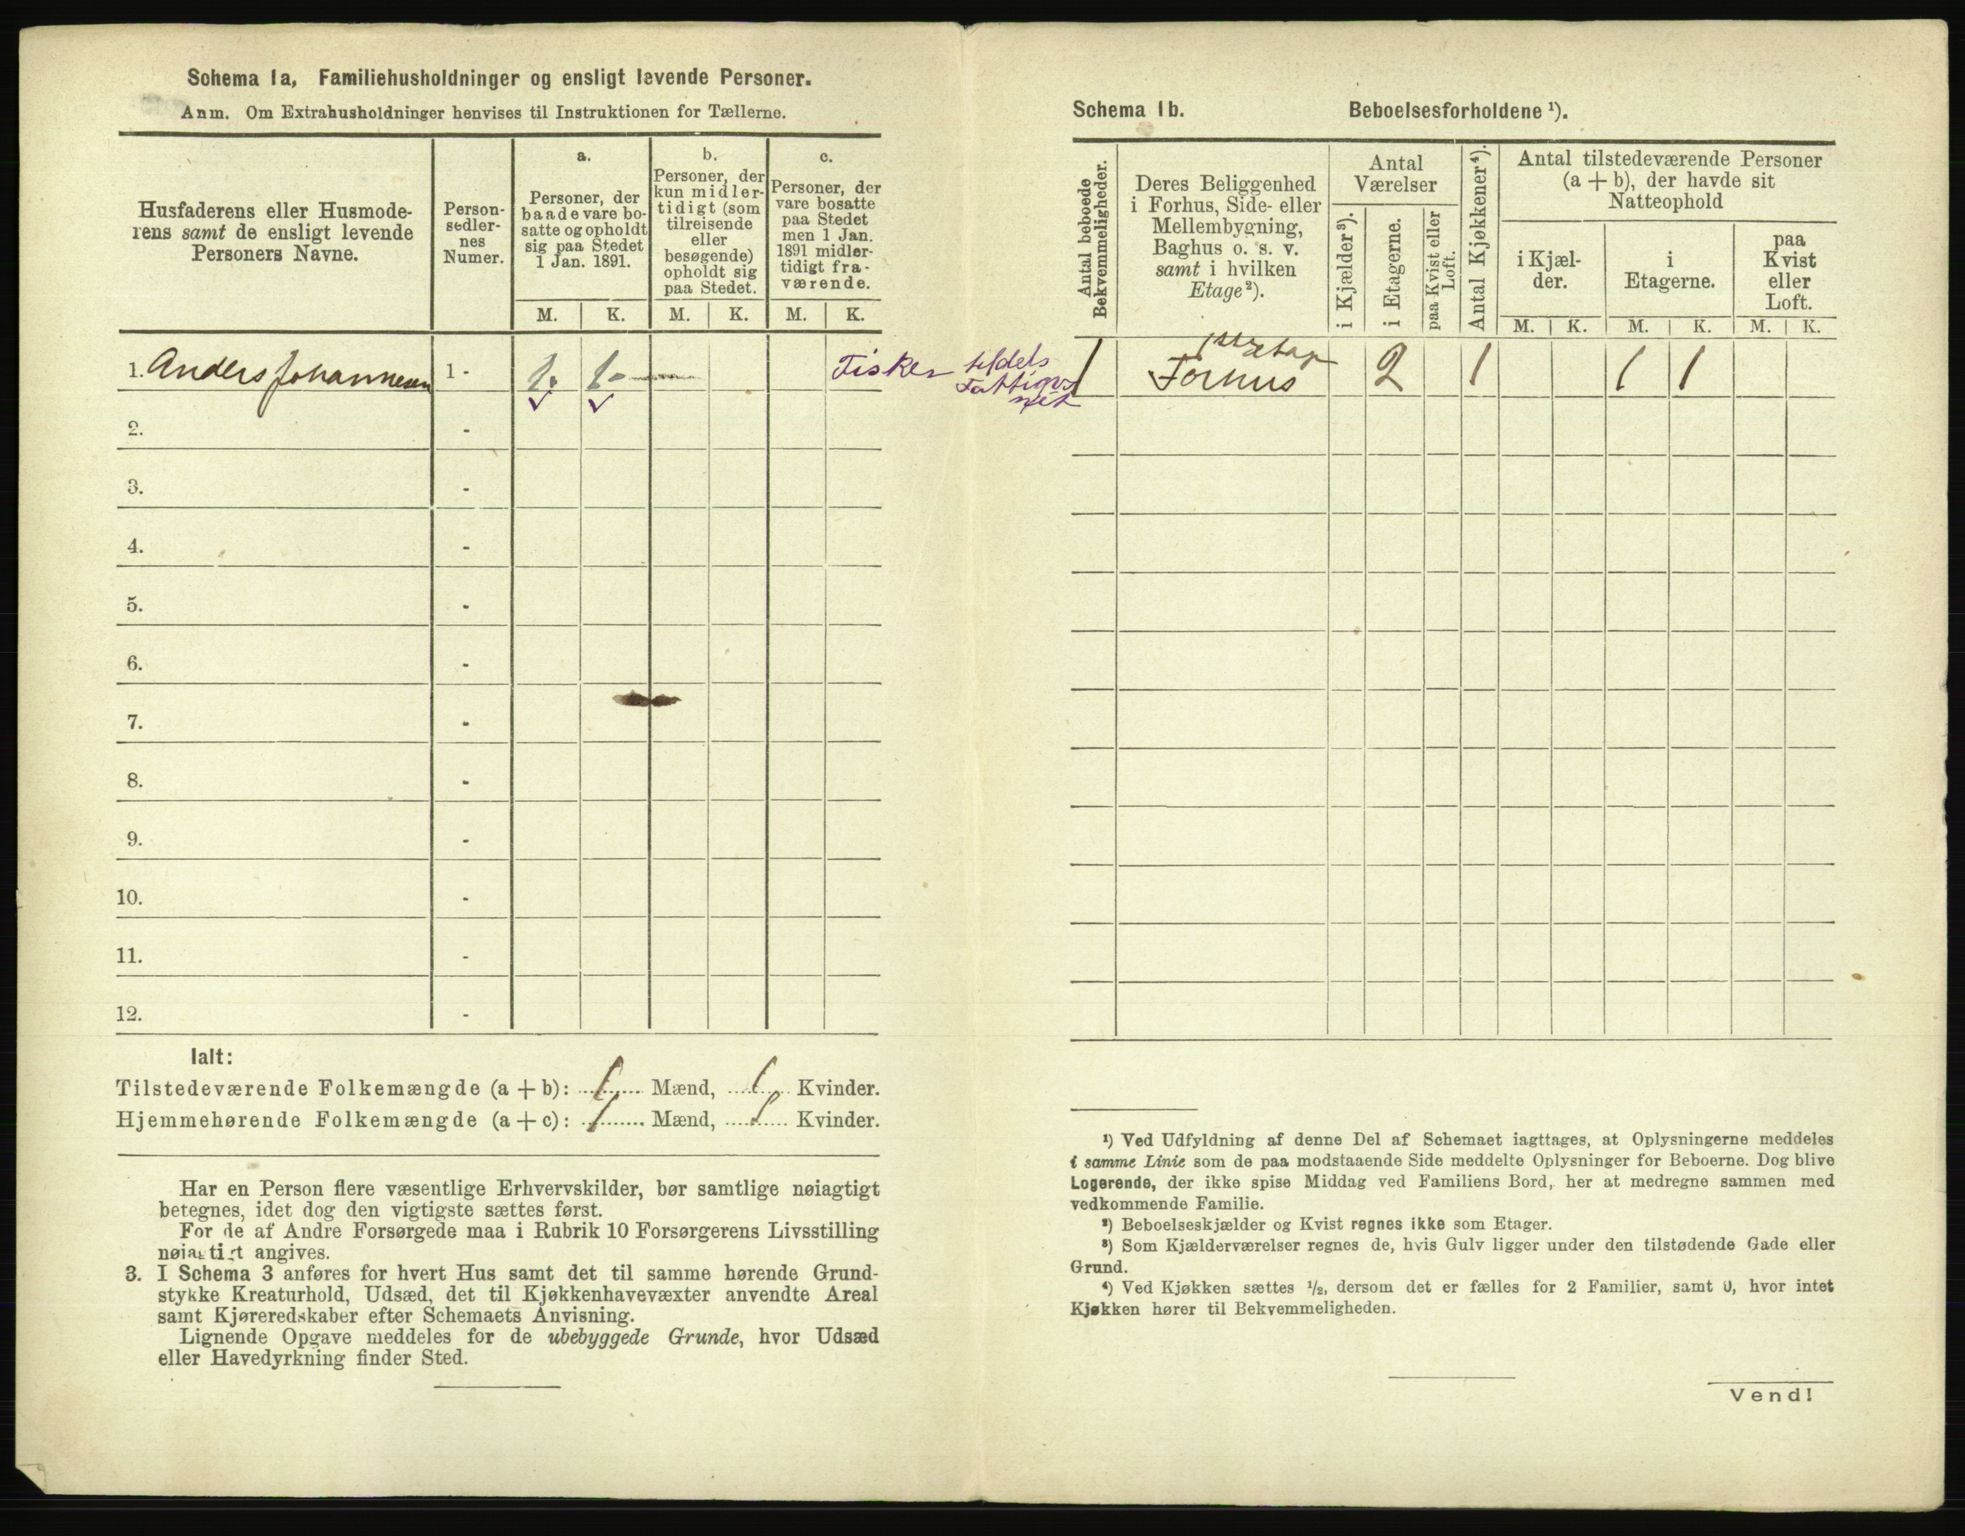 Schema 1a. Familiehusholdninger og ensligt levende Personer.
Anm. Om Extrahusholdninger henvises til Instruktionen for Tællerne.
Husfaderens eller Husmode-
rens samt de ensligt levende
Personers Navne.
Person-
sedler-
nes
Numer.
a.
Personer, der
baade vare bo-
satte og opholdt
sig paa Stedet
1 Jan. 1891.
b.
Personer, der
kun midler-
tidigt (som
tilreisende
eller
besøgende)
opholdt sig
paa Stedet.
c.
Personer, der
vare bosatte
paa Stedet
men 1 Jan.
1891 midler-
tidigt fra-
værende.
M. K. M. K. M. K.
1. Anders Johannesen 1 - 1. 1 - Fisker tildels
Fattigv.
2. -
3. -
4. -
5. -
6. -
7. -
8. -
9. -
10. -
11. -
12. -
Ialt:
Tilstedeværende Folkemængde (a + b): 1 Mænd, 1 Kvinder.
Hjemmehørende Folkemængde (a + c): 1 Mænd, 1 Kvinder.
Har en Person flere væsentlige Erhvervskilder, bør samtlige nøiagtigt
betegnes, idet dog den vigtigste sættes først.
For de af Andre Forsørgede maa i Rubrik 10 Forsørgerens Livsstilling
nøiagtigt angives.
3. I Schema 3 anføres for hvert Hus samt det til samme hørende Grund-
stykke Kreaturhold, Udsæd, det til Kjøkkenhavevæxter anvendte Areal
samt Kjøreredskaber efter Schemaets Anvisning.
Lignende Opgave meddeles for de ubebyggede Grunde, hvor Udsæd
eller Havedyrkning finder Sted.
Schema 1b. Beboelsesforholdene ¹).
Antal beboede
Bekvemmeligheder.
Deres Beliggenhed
i Forhus, Side- eller
Mellembygning,
Baghus o. s. v.
samt i hvilken
Etage²).
Antal
Værelser
i Kjælder³).
i Etagerne.
paa Kvist eller
Loft.
Antal Kjøkkener⁴).
Antal tilstedeværende Personer
(a + b), der havde sit
Natteophold
i Kjæl-
der.
i
Etagerne.
paa
Kvist
eller
Loft.
M. K. M. K. M. K.
1 Forhus 2 1 1 1
¹) Ved Udfyldning af denne Del af Schemaet iagttages, at Oplysningerne meddeles
i samme Linie som de paa modstaaende Side meddelte Oplysninger for Beboerne. Dog blive
Logerende, der ikke spise Middag ved Familiens Bord, her at medregne sammen med
vedkommende Familie.
²) Beboelseskjælder og Kvist regnes ikke som Etager.
³) Som Kjælderværelser regnes de, hvis Gulv ligger under den tilstødende Gade eller
Grund.
⁴) Ved Kjøkken sættes ½, dersom det er fælles for 2 Familier, samt 0, hvor intet
Kjøkken hører til Bekvemmeligheden.
Vend!